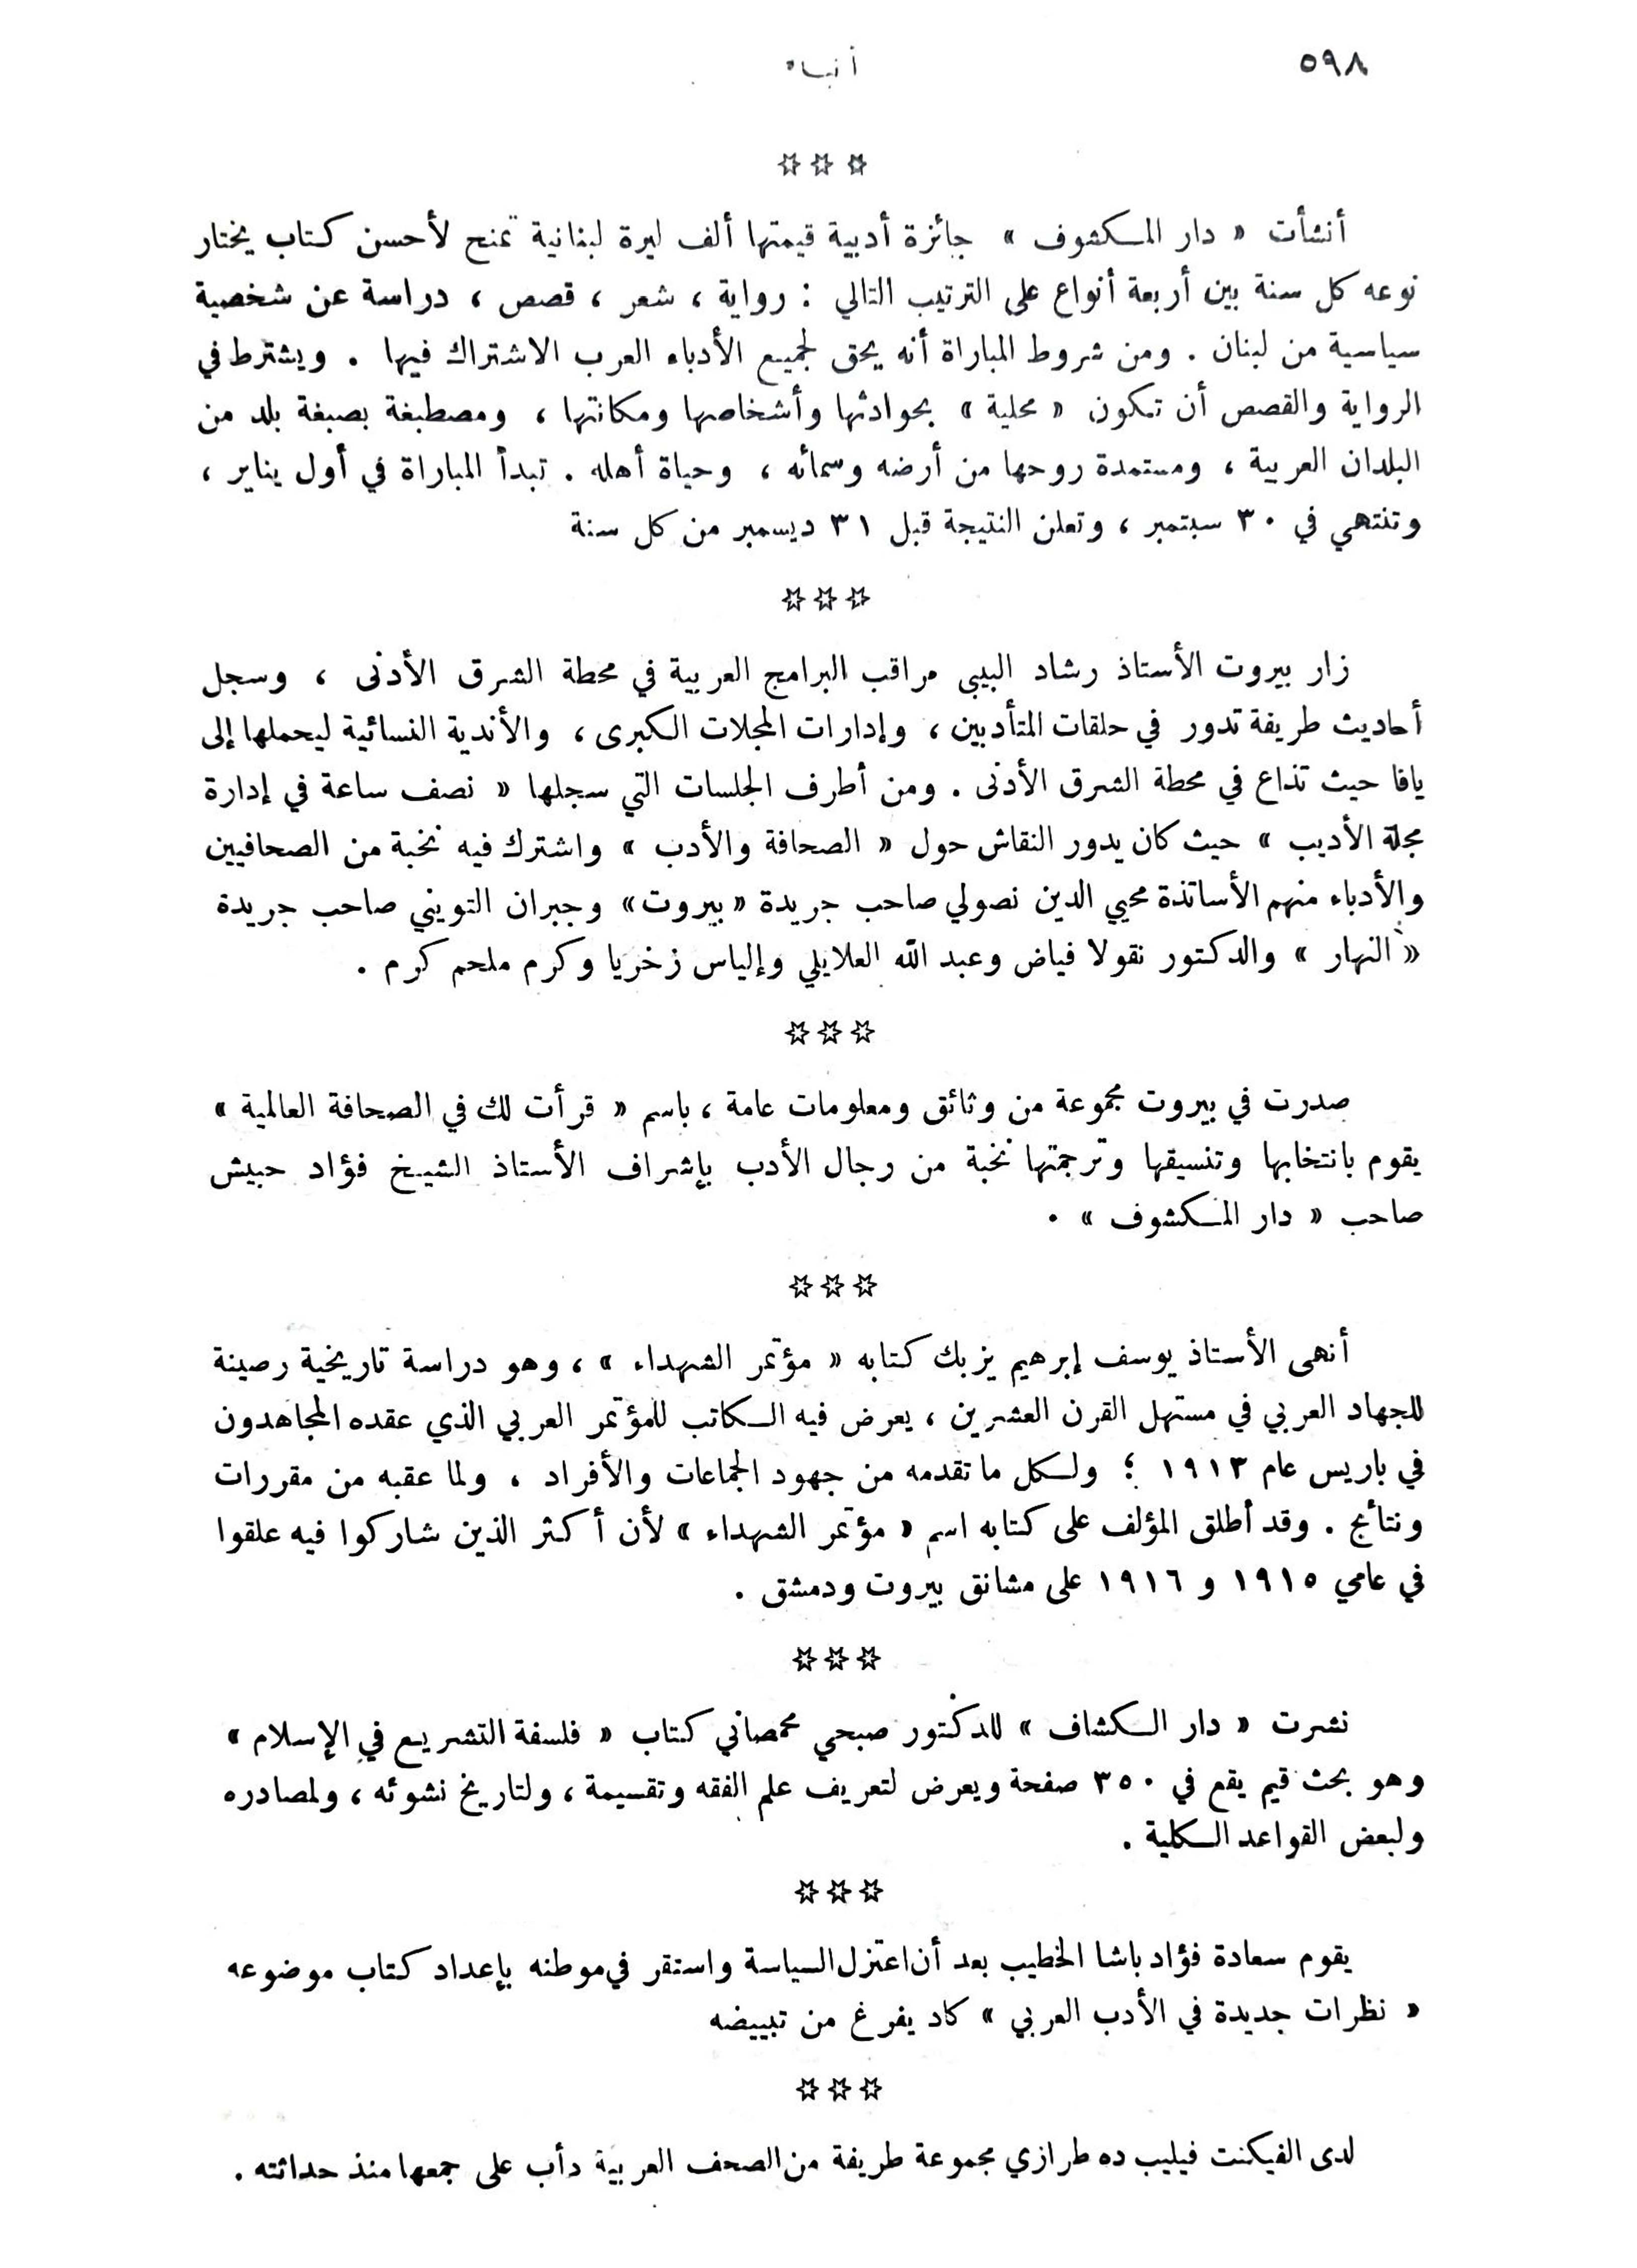 ٥٩٨
أنباء
☆ ☆ ☆
أنشأت « دار المكشوف » جائزة أدبية قيمتها ألف ليرة لبنانية تمنح لأحسن كتاب يختار
نوعه كل سنة بين أربعة أنواع على الترتيب التالي : رواية ، شعر ، قصص ، دراسة عن شخصية
سياسية من لبنان . ومن شروط المباراة أنه يحق لجميع الأدباء العرب الاشتراك فيها . ويشترط في
الرواية والقصص أن تكون « محلية » بحوادثها وأشخاصها ومكانتها ، ومصطبغة بصبغة بلد من
البلدان العربية ، ومستمدة روحها من أرضه وسمائه ، وحياة أهله . تبدأ المباراة في أول يناير ،
وتنتهي في ٣٠ سبتمبر ، وتعلن النتيجة قبل ٣١ ديسمبر من كل سنة
☆ ☆ ☆
زار بيروت الأستاذ رشاد البيبى مراقب البرامج العربية في محطة الشرق الأدنى ، وسجل
أحاديث طريفة تدور في حلقات المتأدبين ، وإدارات المجلات الكبرى ، والأندية النسائية ليحملها إلى
يافا حيث تذاع في محطة الشرق الأدنى . ومن أطرف الجلسات التي سجلها « نصف ساعة في إدارة
مجلة الأديب » حيث كان يدور النقاش حول « الصحافة والأدب » واشترك فيه نخبة من الصحافيين
والأدباء منهم الأساتذة محيي الدين نصولي صاحب جريدة « بيروت » وجبران التويني صاحب جريدة
« النهار » والدكتور نقولا فياض وعبد الله العلايلي وإلياس زخريا وكرم ملحم كرم .
☆ ☆ ☆
صدرت في بيروت مجموعة من وثائق ومعلومات عامة ، باسم « قرأت لك في الصحافة العالمية »
يقوم بانتخابها وتنسيقها وترجمتها نخبة من رجال الأدب بإشراف الأستاذ الشيخ فؤاد حبيش
صاحب « دار المكشوف » .
☆ ☆ ☆
أنهى الأستاذ يوسف إبرهيم يزبك كتابه « مؤتمر الشهداء » ، وهو دراسة تاريخية رصينة
للجهاد العربي في مستهل القرن العشرين ، يعرض فيه الكاتب للمؤتمر العربي الذي عقده المجاهدون
في باريس عام ١٩١٣ ؛ ولكل ما تقدمه من جهود الجماعات والأفراد ، ولما عقبه من مقررات
ونتائج . وقد أطلق المؤلف على كتابه اسم « مؤتمر الشهداء » لأن أكثر الذين شاركوا فيه علقوا
في عامي ١٩١٥ و ١٩١٦ على مشانق بيروت ودمشق .
☆ ☆ ☆
نشرت « دار الكشاف » للدكتور صبحي محمصاني كتاب « فلسفة التشريع في الإسلام »
وهو بحث قيم يقع في ٣٥٠ صفحة ويعرض لتعريف علم الفقه وتقسيمة ، ولتاريخ نشوئه ، ولمصادره
ولبعض القواعد الكلية .
☆ ☆ ☆
يقوم سعادة فؤاد باشا الخطيب بعد أن اعتزل السياسة واستقر في موطنه بإعداد كتاب موضوعه
« نظرات جديدة في الأدب العربي » كاد يفرغ من تبييضه
☆ ☆ ☆
لدى الفيكنت فيليب ده طرازي مجموعة طريفة من الصحف العربية دأب على جمعها منذ حداثته .